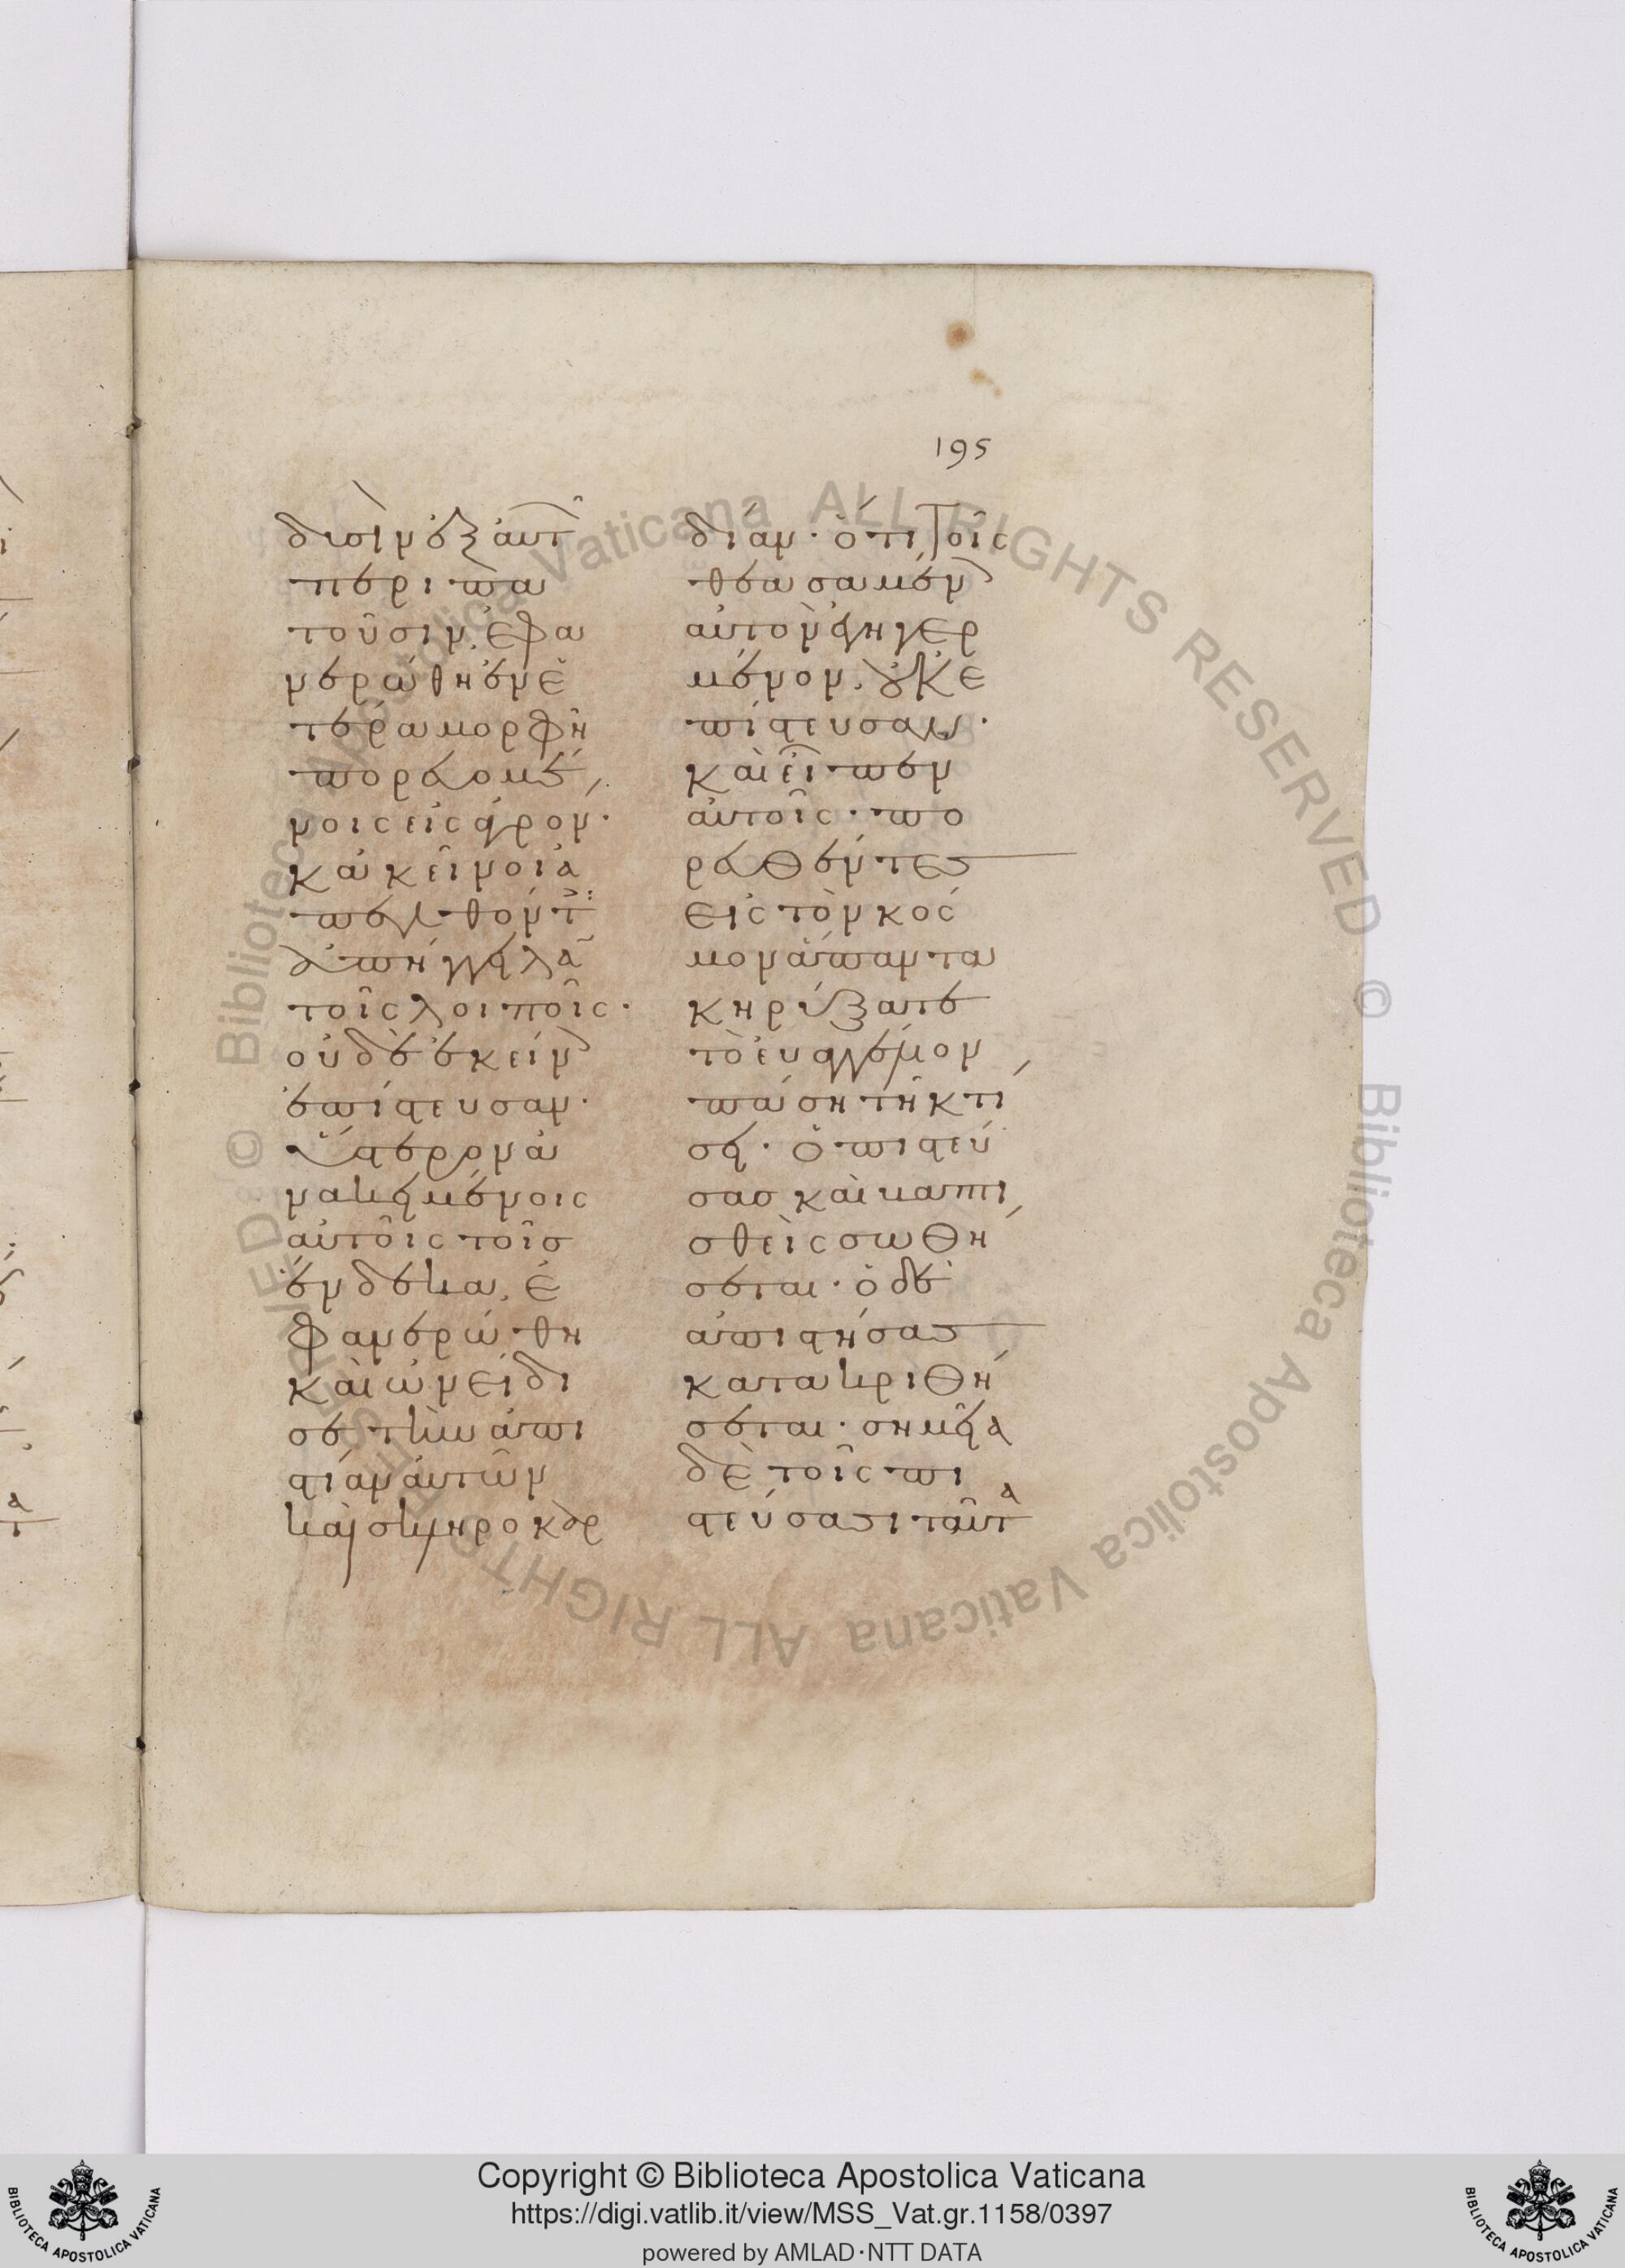 195
δυσὶν ἐξ αὐτῶ
περιπα
τοῦσιν. ἐφα
νερώθη ἐν ἑ
τέρα μορφῆ
πορευομέ
νοις εἰς ἀγρον·
κἀκεῖνοι ἀ
πελθόντε
ἀπήγγειλα
τοῖς λοιποῖς·
οὐδὲ ἐκείν
ἐπίστευσαν·
ὕστερον ἀ
νακειμένοις
αὐτοῖς τοῖσ
ἕνδεκα. ἐ
φανερώθη
καὶ ὠνείδι
σε τὴν ἀπι
στίαν αὐτῶν
καὶ σκληροκαρ
δίαν· ὅτι τοῖς
θεασαμέν
αὐτὸν ἐγηγερ
μένον. οὐκ ἐ
πίστευσαν·
καὶ εἶπεν
αὐτοῖς· πο
ρευθέντες
εἰς τὸν κόσ
μον ἅπαντα
κηρύξατε
τὸ εὐαγγέλιον
πάση τῆ κτί
σει· ὁ πιστεύ
σασ καὶ βαπτι
σθεὶς σωθή
σεται· ὁ δὲ
ἀπιστήσας
κατακριθή
σεται· σημεῖα
δὲ τοῖς πι
στεύσασι ταῦτα
Copyright © Biblioteca Apostolica Vaticana
https://digi.vatlib.it/view/MSS_Vat.gr.1158/0397
powered by AMLAD·NTT DATA
BIBLIOTECA APOSTOLICA VATICANA
BIBLIOTECA APOSTOLICA VATICANA
© Biblioteca Apostolica Vaticana ALL RIGHTS RESERVED © Biblioteca Apostolica Vaticana ALL RIGHTS RESERVED